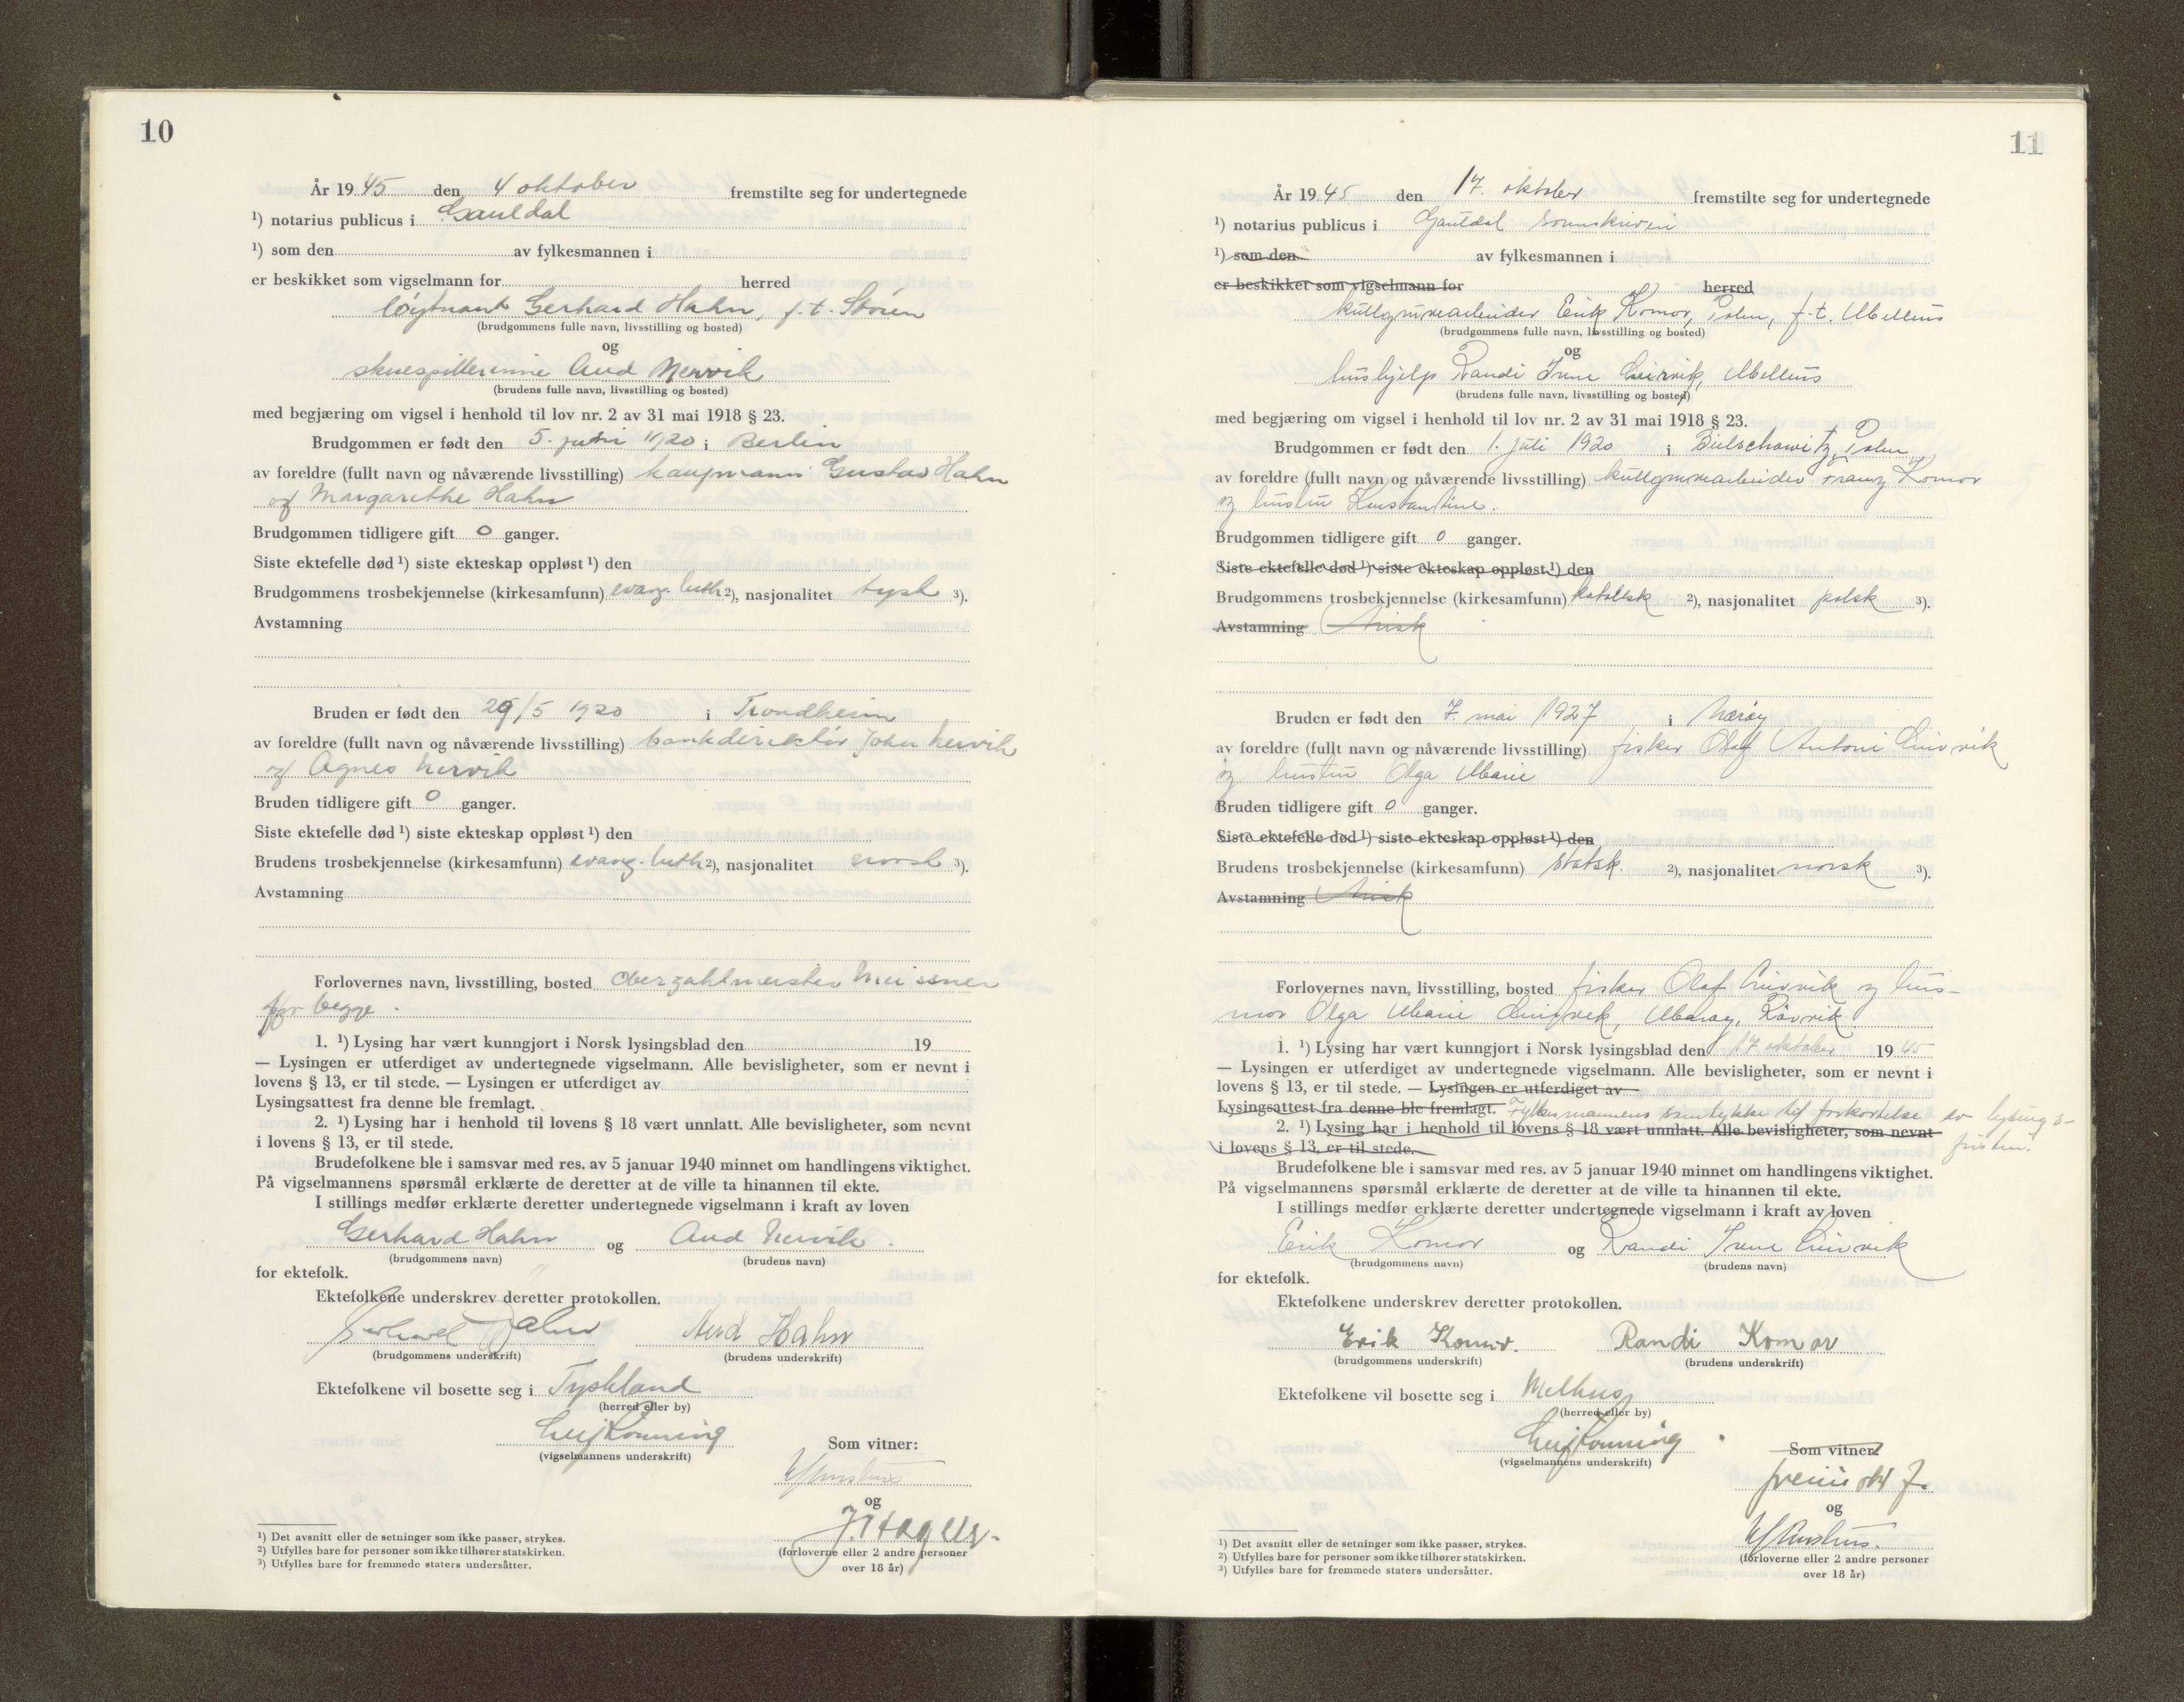 10
År 1945 den 4 oktober fremstilte seg for undertegnede
¹) notarius publicus i Gauldal
¹) som den av fylkesmannen i
er beskikket som vigselmann for herred
løytnant Gerhard Hahn, f.t. Støren
(brudgommens fulle navn, livsstilling og bosted)
og
skuespillerinne Aud Nervik
(brudens fulle navn, livsstilling og bosted)
med begjæring om vigsel i henhold til lov nr. 2 av 31 mai 1918 § 23.
Brudgommen er født den 5. 1920 i Berlin
av foreldre (fullt navn og nåværende livsstilling) kaupmann Gustav Hahn
og Margarethe Hahn
Brudgommen tidligere gift 0 ganger.
Siste ektefelle død ¹) siste ekteskap oppløst ¹) den
Brudgommens trosbekjennelse (kirkesamfunn) evang. luth ²), nasjonalitet tysk ³).
Avstamning
Bruden er født den 29/5 1920 i Trondheim
av foreldre (fullt navn og nåværende livsstilling) bankdirektør John Nervik
og Agnes Nervik
Bruden tidligere gift 0 ganger.
Siste ektefelle død ¹) siste ekteskap oppløst ¹) den
Brudens trosbekjennelse (kirkesamfunn) evang. luth ²), nasjonalitet norsk ³).
Avstamning
Forlovernes navn, livsstilling, bosted Oberzahlmeister Meissner
for begge.
1. ¹) Lysing har vært kunngjort i Norsk lysingsblad den 19
— Lysingen er utferdiget av undertegnede vigselmann. Alle bevisligheter, som er nevnt i
lovens § 13, er til stede. — Lysingen er utferdiget av
Lysingsattest fra denne ble fremlagt.
2. ¹) Lysing har i henhold til lovens § 18 vært unnlatt. Alle bevisligheter, som nevnt
i lovens § 13, er til stede.
Brudefolkene ble i samsvar med res. av 5 januar 1940 minnet om handlingens viktighet.
På vigselmannens spørsmål erklærte de deretter at de ville ta hinannen til ekte.
I stillings medfør erklærte deretter undertegnede vigselmann i kraft av loven
Gerhard Hahn og Aud Nervik.
(brudgommens navn) (brudens navn)
for ektefolk.
Ektefolkene underskrev deretter protokollen.
Gerhard Hahn Aud Hahn
(brudgommens underskrift) (brudens underskrift)
Ektefolkene vil bosette seg i Tyskland
(herred eller by)
Leif Rønning
(vigselmannens underskrift)
Som vitner:
og
(forloverne eller 2 andre personer
over 18 år)
¹) Det avsnitt eller de setninger som ikke passer, strykes.
²) Utfylles bare for personer som ikke tilhører statskirken.
³) Utfylles bare for fremmede staters undersåtter.
11
År 1945 den 17. oktober fremstilte seg for undertegnede
¹) notarius publicus i Gauldal sorenskriveri
¹) som den av fylkesmannen i
er beskikket som vigselmann for herred
kullgruvearbeider Erik Komor, Polen, f.t. Melhus
(brudgommens fulle navn, livsstilling og bosted)
og
hushjelp Randi Irene Leirvik, Melhus
(brudens fulle navn, livsstilling og bosted)
med begjæring om vigsel i henhold til lov nr. 2 av 31 mai 1918 § 23.
Brudgommen er født den 1. juli 1920 i Bielschowitz, Polen
av foreldre (fullt navn og nåværende livsstilling) kullgruvearbeider Franz Komor
og hustru Konstantine.
Brudgommen tidligere gift 0 ganger.
Siste ektefelle død ¹) siste ekteskap oppløst ¹) den
Brudgommens trosbekjennelse (kirkesamfunn) katolsk ²), nasjonalitet polsk ³).
Avstamning Arisk
Bruden er født den 7. mai 1927 i Nærøy
av foreldre (fullt navn og nåværende livsstilling) fisker Olaf Antoni Leirvik
og hustru Olga Marie
Bruden tidligere gift 0 ganger.
Siste ektefelle død ¹) siste ekteskap oppløst ¹) den
Brudens trosbekjennelse (kirkesamfunn) statsk. ²), nasjonalitet norsk ³).
Avstamning Arisk
Forlovernes navn, livsstilling, bosted fisker Olaf Leirvik og hus-
mor Olga Marie Leirvik, Rørvik
1. ¹) Lysing har vært kunngjort i Norsk lysingsblad den 17 oktober 1945
— Lysingen er utferdiget av undertegnede vigselmann. Alle bevisligheter, som er nevnt i
lovens § 13, er til stede. — Lysingen er utferdiget av
Lysingsattest fra denne ble fremlagt. Fylkesmannens samtykke til forkortelse av lysings-
2. ¹) Lysing har i henhold til lovens § 18 vært unnlatt. Alle bevisligheter, som nevnt
fristen.
i lovens § 13, er til stede.
Brudefolkene ble i samsvar med res. av 5 januar 1940 minnet om handlingens viktighet.
På vigselmannens spørsmål erklærte de deretter at de ville ta hinannen til ekte.
I stillings medfør erklærte deretter undertegnede vigselmann i kraft av loven
Erik Komor og Randi Irene Leirvik
(brudgommens navn) (brudens navn)
for ektefolk.
Ektefolkene underskrev deretter protokollen.
Erik Komor. Randi Komor
(brudgommens underskrift) (brudens underskrift)
Ektefolkene vil bosette seg i Melhus
(herred eller by)
Leif Rønning
(vigselmannens underskrift)
Som vitner:
og
(forloverne eller 2 andre personer
over 18 år)
¹) Det avsnitt eller de setninger som ikke passer, strykes.
²) Utfylles bare for personer som ikke tilhører statskirken.
³) Utfylles bare for fremmede staters undersåtter.